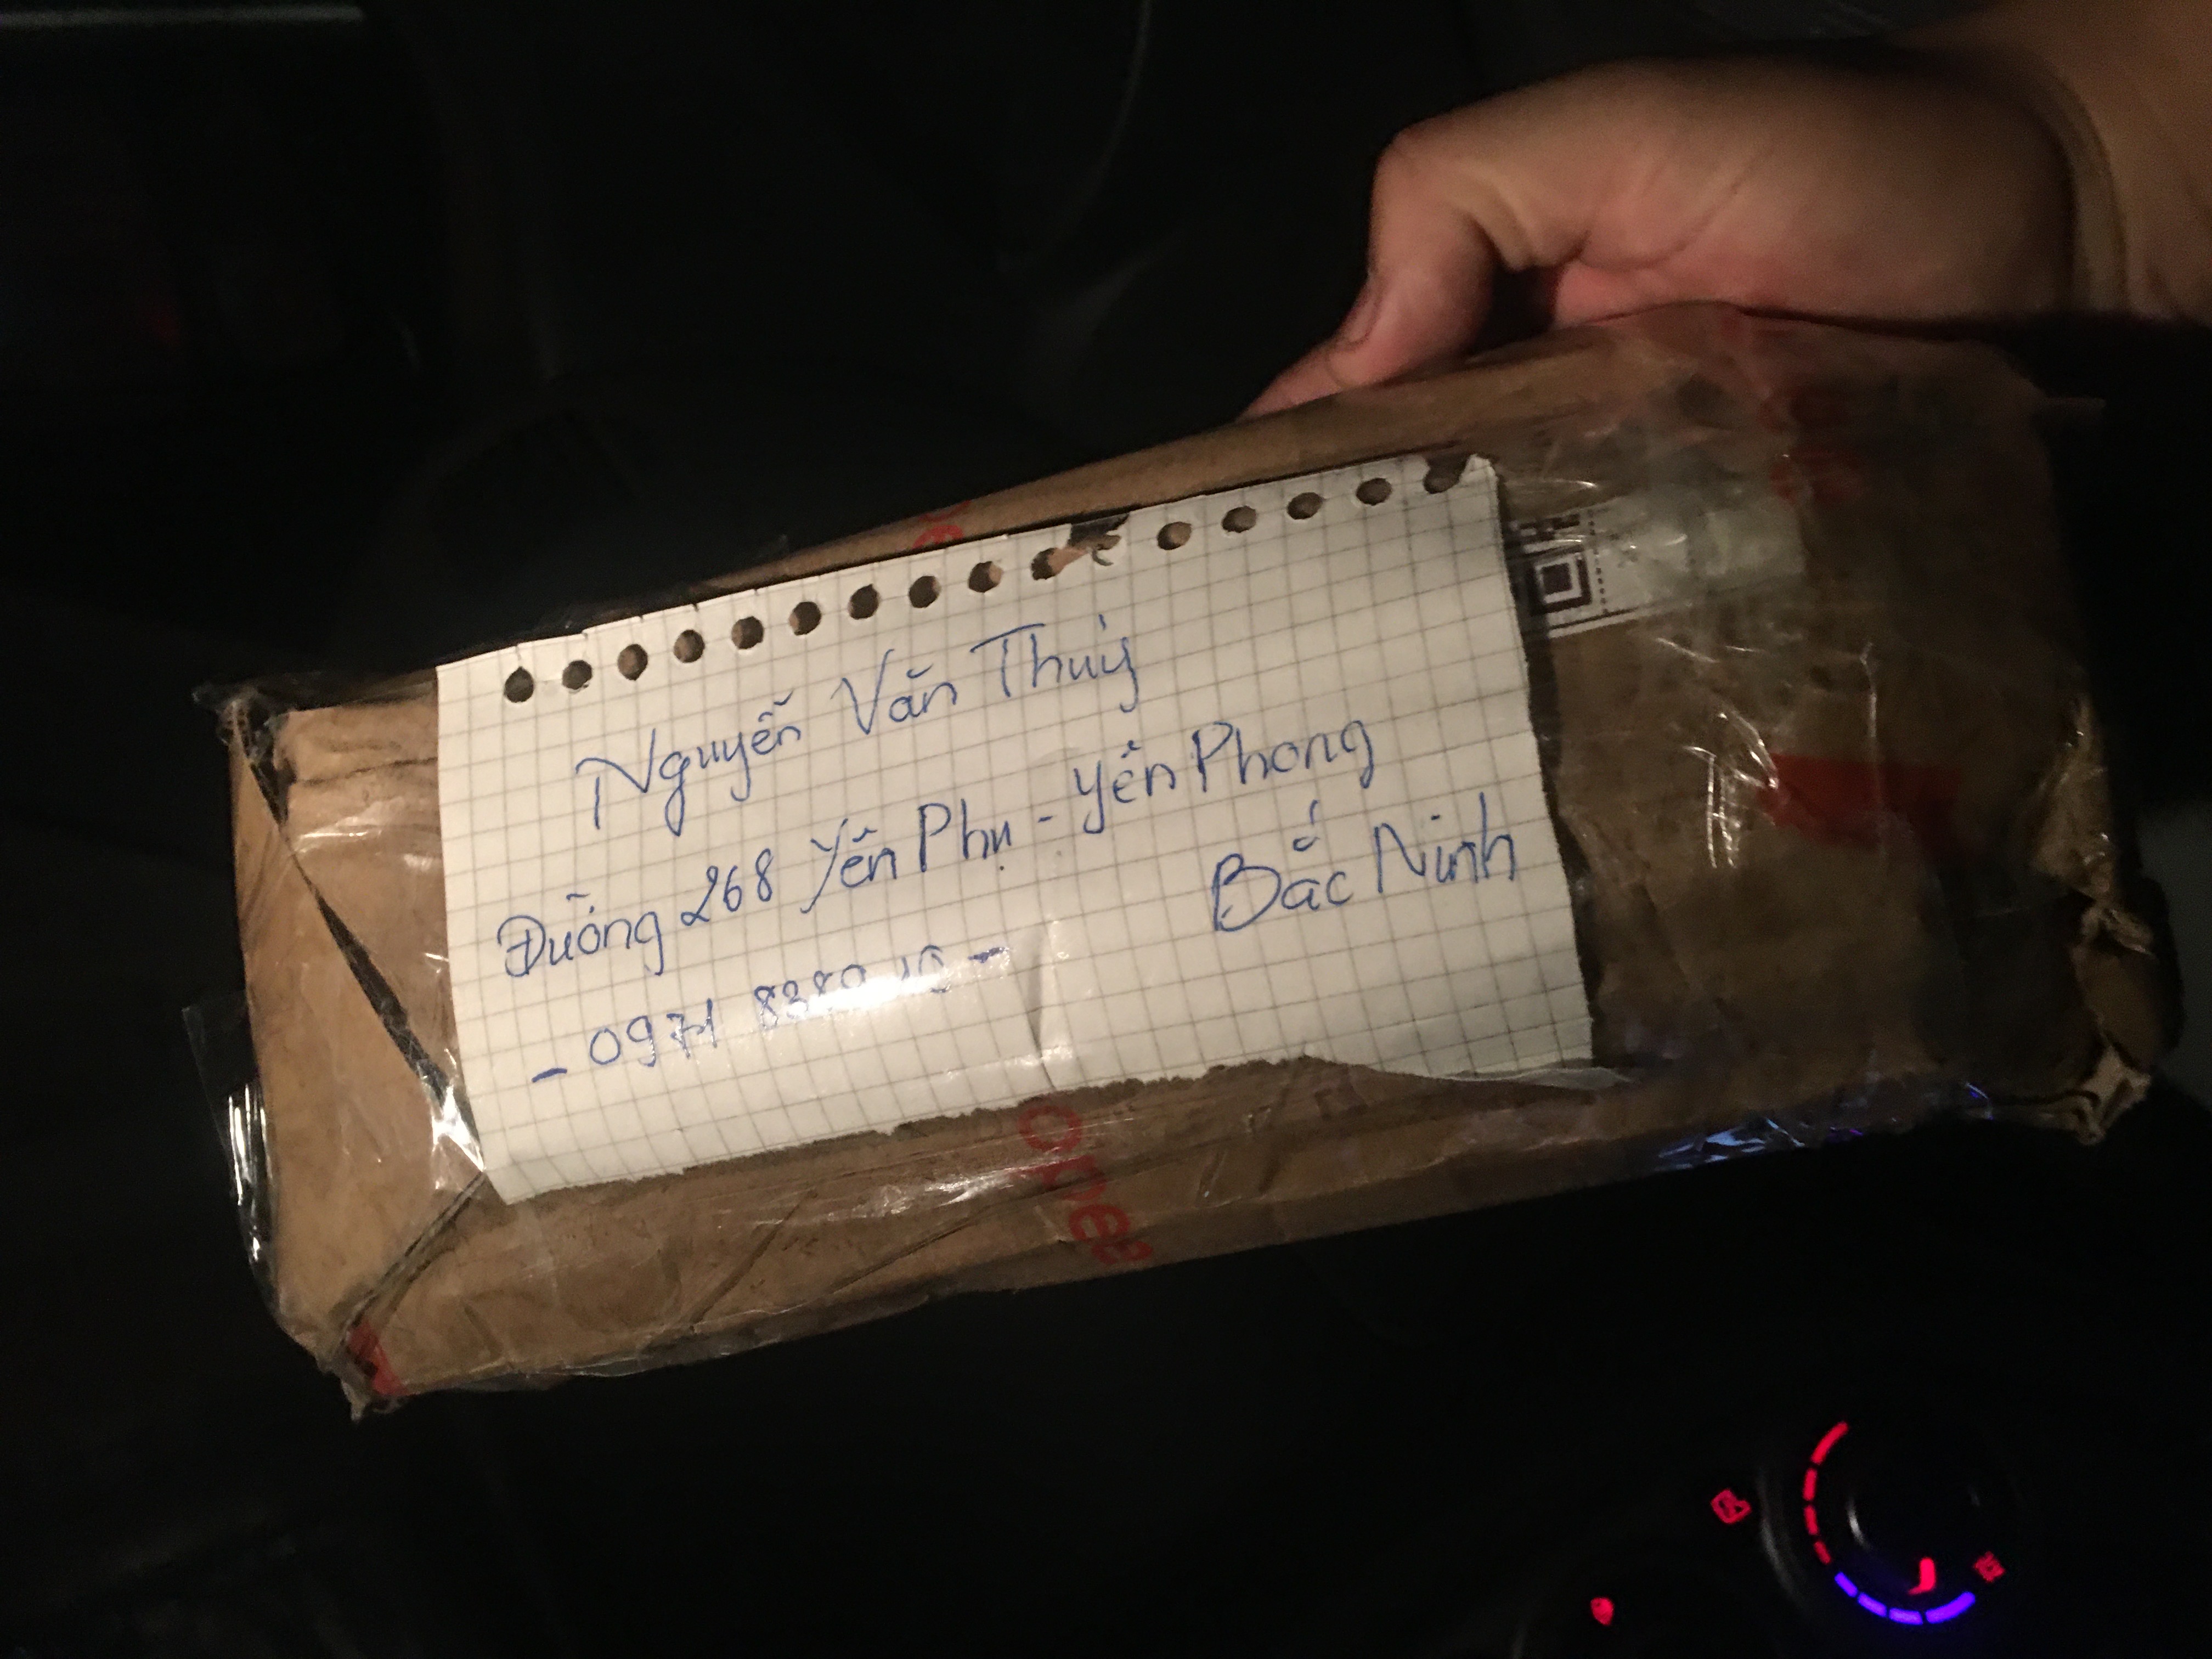 Nguyễn Văn Thuỷ
Đường 268 Yên Phụ - Yên Phong
Bắc Ninh
- 0971
opee